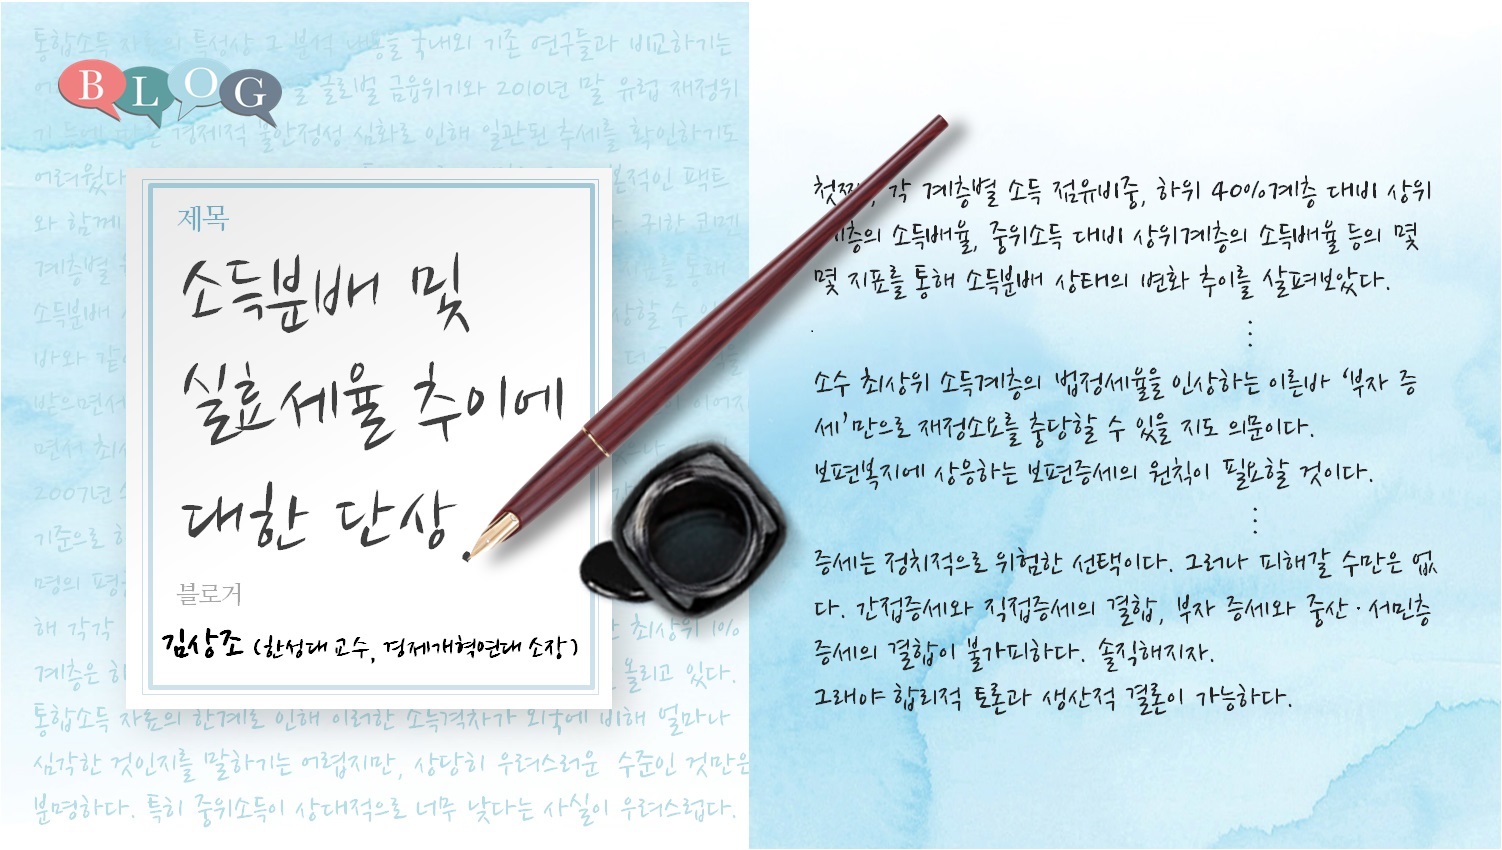 BLOG
제목
소득분배 및
실효세율 추이에
대한 단상.
블로거
김상조 (한성대 교수, 경제개혁연대 소장)
통합소득 자료의 특성상 그 분석 내용을 국내외 기존 연구들과 비교하기는
글로벌 금융위기와 2010년 말 유럽 재정위
기 등에 따른 경제적 불안정성 심화로 인해 일관된 추세를 확인하기도
어려웠다
팩트
와 함께 귀한 코멘
계층별 통해
소득분배 수
바와 같
받으면서 이어지
면서
2007년
기준으로
명의 평
해 각각 최상위 1%
계층은 올리고 있다.
통합소득 자료의 한계로 인해 이러한 소득격차가 외국에 비해 얼마나
심각한 것인지를 말하기는 어렵지만, 상당히 우려스러운 수준인 것만은
분명하다. 특히 중위소득이 상대적으로 너무 낮다는 사실이 우려스럽다.
첫째, 각 계층별 소득 점유비중, 하위 40%계층 대비 상위
계층의 소득배율, 중위소득 대비 상위계층의 소득배율 등의 몇
몇 지표를 통해 소득분배 상태의 변화 추이를 살펴보았다.
⋮
소수 최상위 소득계층의 법정세율을 인상하는 이른바 ‘부자 증
세’만으로 재정소요를 충당할 수 있을 지도 의문이다.
보편복지에 상응하는 보편증세의 원칙이 필요할 것이다.
⋮
증세는 정치적으로 위험한 선택이다. 그러나 피해갈 수만은 없
다. 간접증세와 직접증세의 결합, 부자 증세와 중산·서민층
증세의 결합이 불가피하다. 솔직해지자.
그래야 합리적 토론과 생산적 결론이 가능하다.